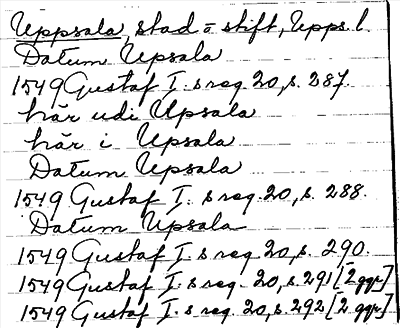 Uppsala, stad o stift, Upps. l.
Datum Upsala
1549 Gustaf I. s reg. 20, s. 287.
här udi Upsala
här i Upsala
Datum Upsala
1549 Gustaf I. s reg. 20, s. 288.
Datum Upsala
1549 Gustaf I. s reg. 20, s. 290.
1549 Gustaf I. s reg. 20, s. 291 [2 ggr]
1549 Gustaf I. s reg. 20, s. 292 [2 ggr]